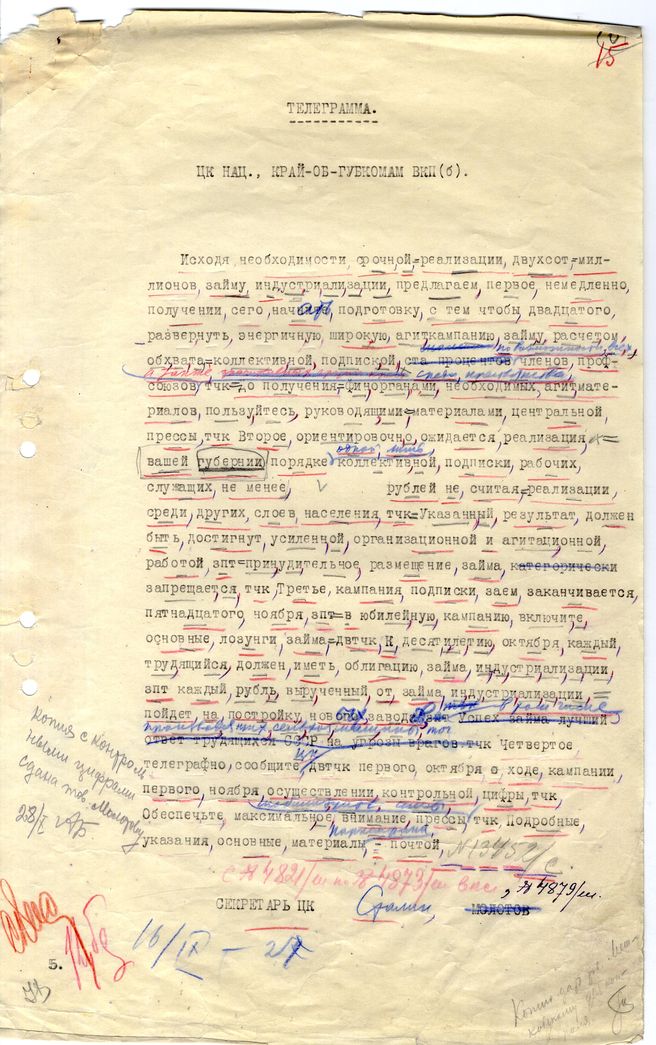 15
ТЕЛЕГРАММА.
ЦК НАЦ., КРАЙ-ОБ-ГУБКОМАМ ВКП(б).
Исходя необходимости срочной реализации, двухсот мил-
лионов займу индустриализации, предлагаем первое, немедленно,
получении сего, начать подготовку, с тем чтобы двадцатого,
развернуть, энергичную широкую, агиткампанию займу расчетом
обхвата коллективной, подпиской, ста процентов членов, проф-
союзов, тчк до получения финорганами, необходимых, агитмате-
риалов, пользуйтесь, руководящими материалами, центральной,
прессы, тчк Второе, ориентировочно, ожидается, реализация
одной лишь
вашей губернии порядке коллективной, подписки, рабочих
служащих, не менее, рублей не, считая реализации,
среди, других, слоев, населения тчк Указанный, результат, должен
быть, достигнут, усиленной, организационной и агитационной,
работой зпт принудительное, размещение, займа, категорически
запрещается, тчк, Третье, кампания, подписки, заем, заканчивается,
пятнадцатого, ноября, зпт в юбилейную, кампанию, включите,
основные, лозунги, займа двтчк К десятилетию, октября, каждый,
трудящийся, должен, иметь, облигацию, займа, индустриализации,
зпт каждый, рубль, вырученный от, займа, индустриализации,
в том числе
пойдет, на постройку, новых заводов Успех займа лучший
ответ трудящихся СССР на угрозы врагов тчк Четвертое
телеграфно, сообщите, двтчк первого, октября о ходе, кампании,
первого, ноября, осуществлении, контрольной, цифры, тчк
Обеспечьте, максимальное внимание, прессы, тчк, Подробные,
указания, основные, материалы, - почтой, №13452/с
с № 4821/ш по № 4873/ш вкл., № 4879/ш.
СЕКРЕТАРЬ ЦК Сталин, МОЛОТОВ
Копия с контроль-
ными цифрами
сдана тов. Молотову
16/IX - 27
5.